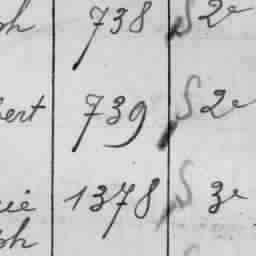 ph 738 S 2e
bert 739 S 2e
1378 S 3e
ph